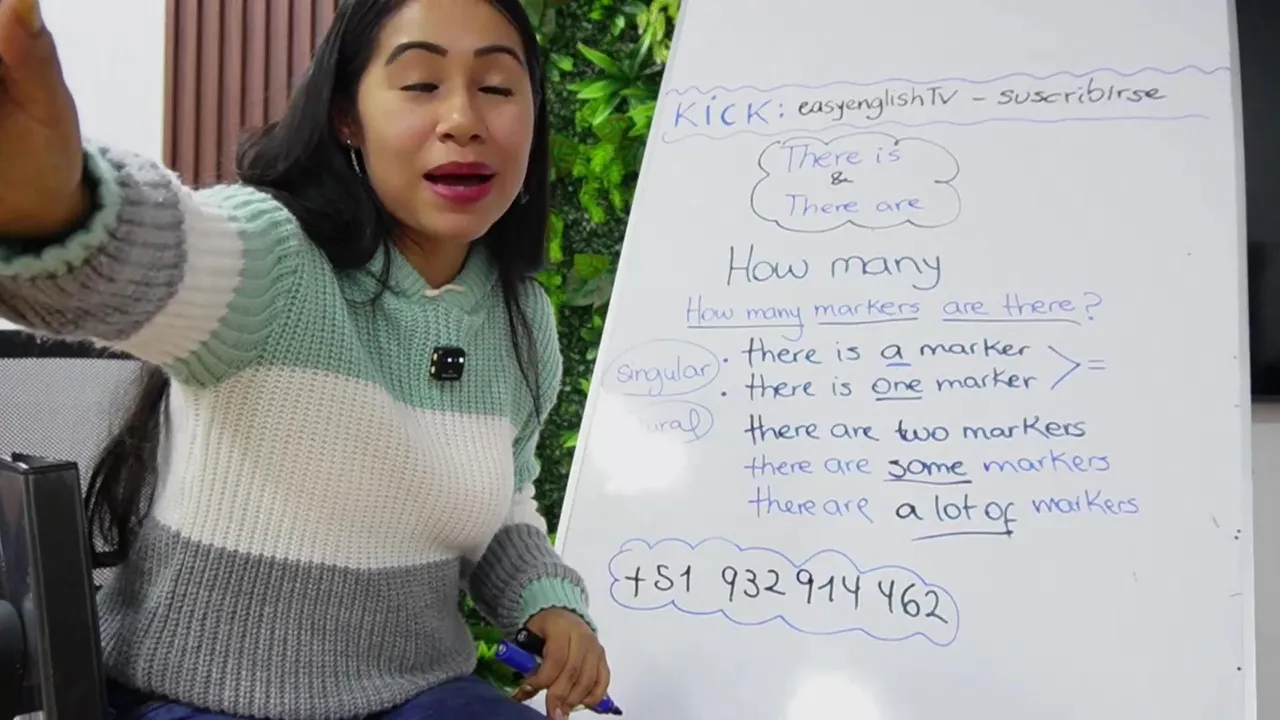 KiCK: easyenglishTV - suscribirse
There is
&
There are
How many
How many markers are there?
singular
• there is a marker
• there is one marker
> =
there are two markers
there are some markers
there are a lot of markers
+51 932 914 462